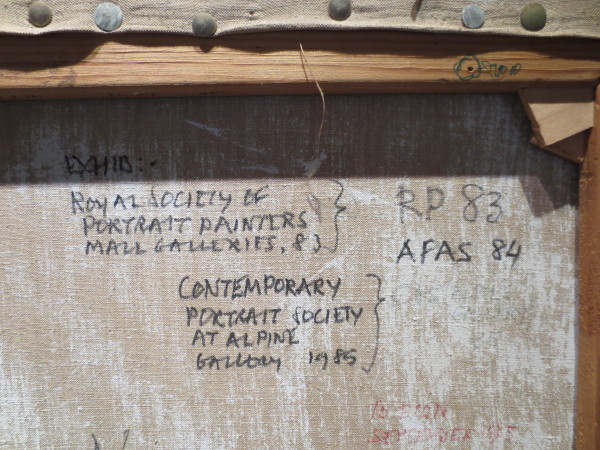 EXHIB:-
ROYAL SOCIETY OF
PORTRAIT PAINTERS
MALL GALLERIES, 83
RP 83
AFAS 84
CONTEMPORARY
PORTRAIT SOCIETY
AT ALPINE
GALLERY 1985
SEPTEMBER